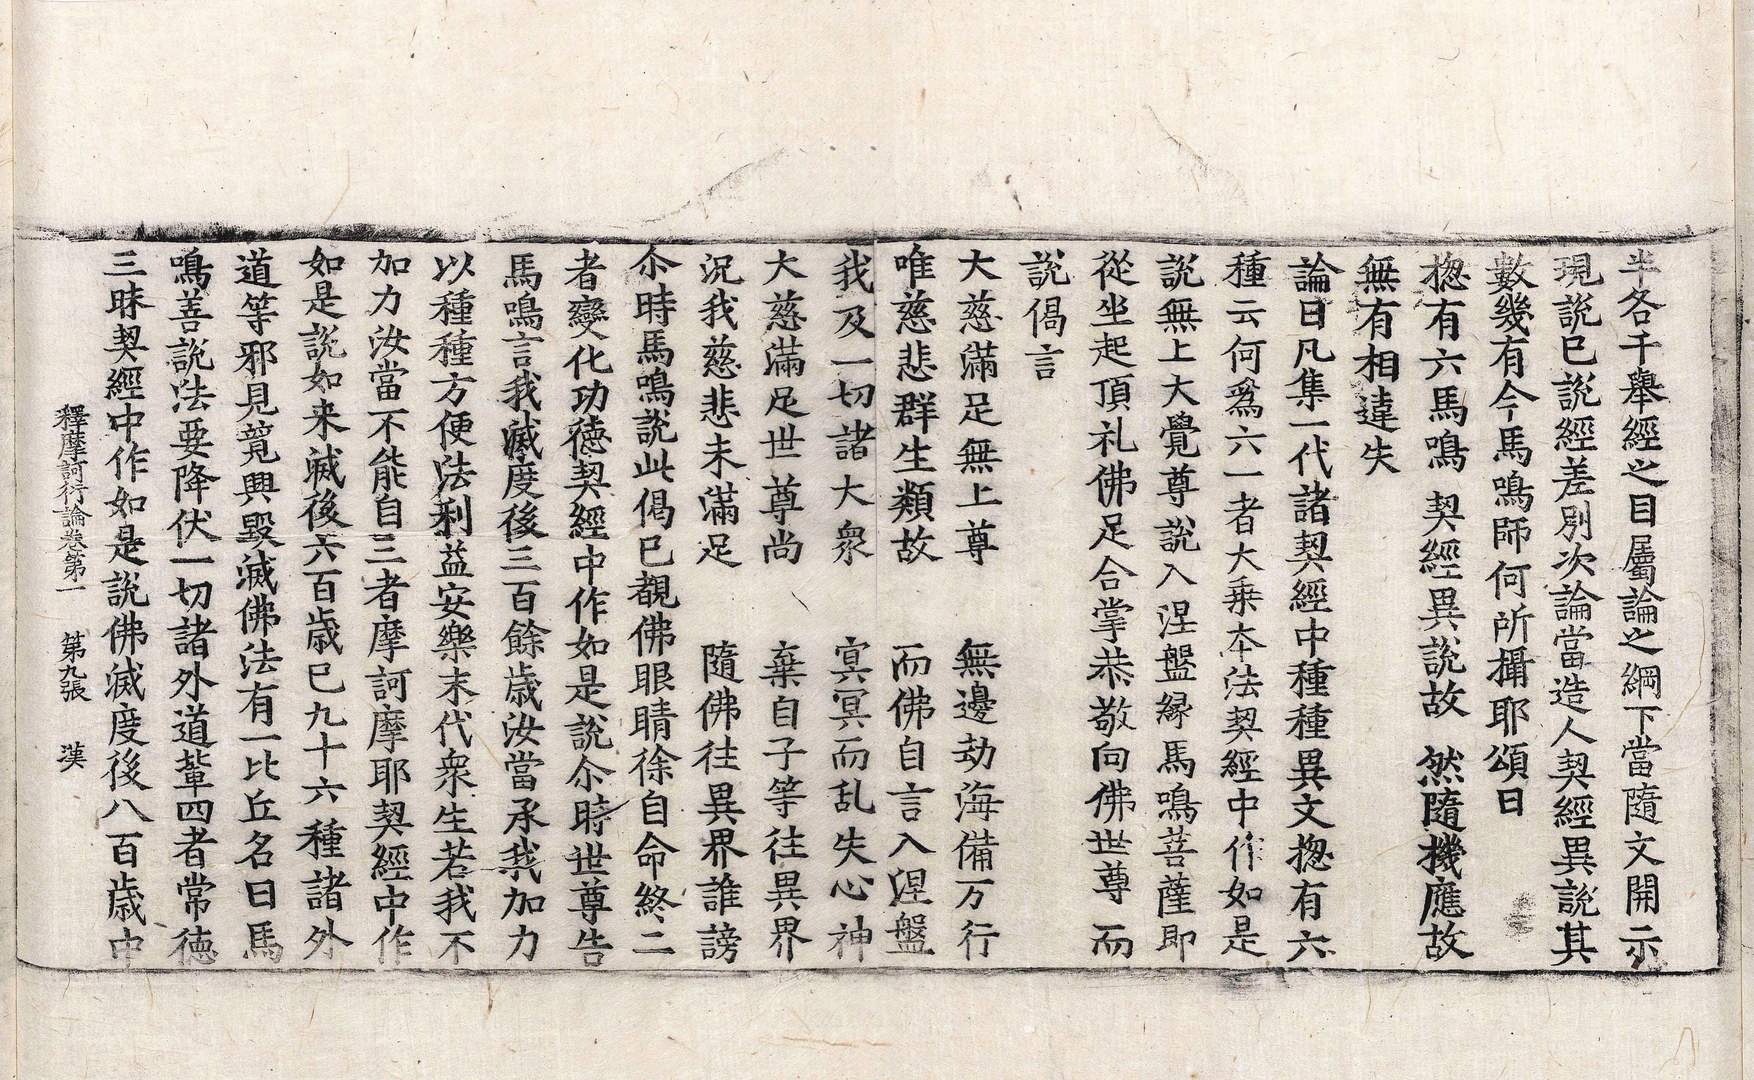 半各千舉經之目屬論之綱下當隨文開示
現說已說經差別次論當造人契經異說其
數幾有今馬鳴師何所攝耶頌曰
惣有六馬鳴　契經異說故　然隨機應故
無有相違失
論曰凡集一代諸契經中種種異文惣有六
種云何爲六一者大乗本法契經中作如是
說無上大覺尊說入涅盤縁馬鳴菩薩即
從坐起頂礼佛足合掌恭敬向佛世尊而
說偈言
大慈滿足無上尊　無邊劫海備万行
唯慈悲群生類故　而佛自言入涅盤
我及一切諸大衆　寘冥而乱失心神
大慈滿足世尊尚　棄自子等往異界
況我慈悲未滿足　隨佛往異界誰謗
尒時馬鳴說此偈已覩佛眼睛徐自命終二
者變化功德契經中作如是說尒時世尊告
馬鳴言我滅度後三百餘歲汝當承我加力
以種種方便法利益安樂末代衆生若我不
加力汝當不能自三者摩訶摩耶契經中作
如是說如来滅後六百歲已九十六種諸外
道等邪見競興毀滅佛法有一比丘名曰馬
鳴善說法要降伏一切諸外道輩四者常德
三昧契經中作如是說佛滅度後八百歲中
釋摩訶衍論卷第一　第九張　漢